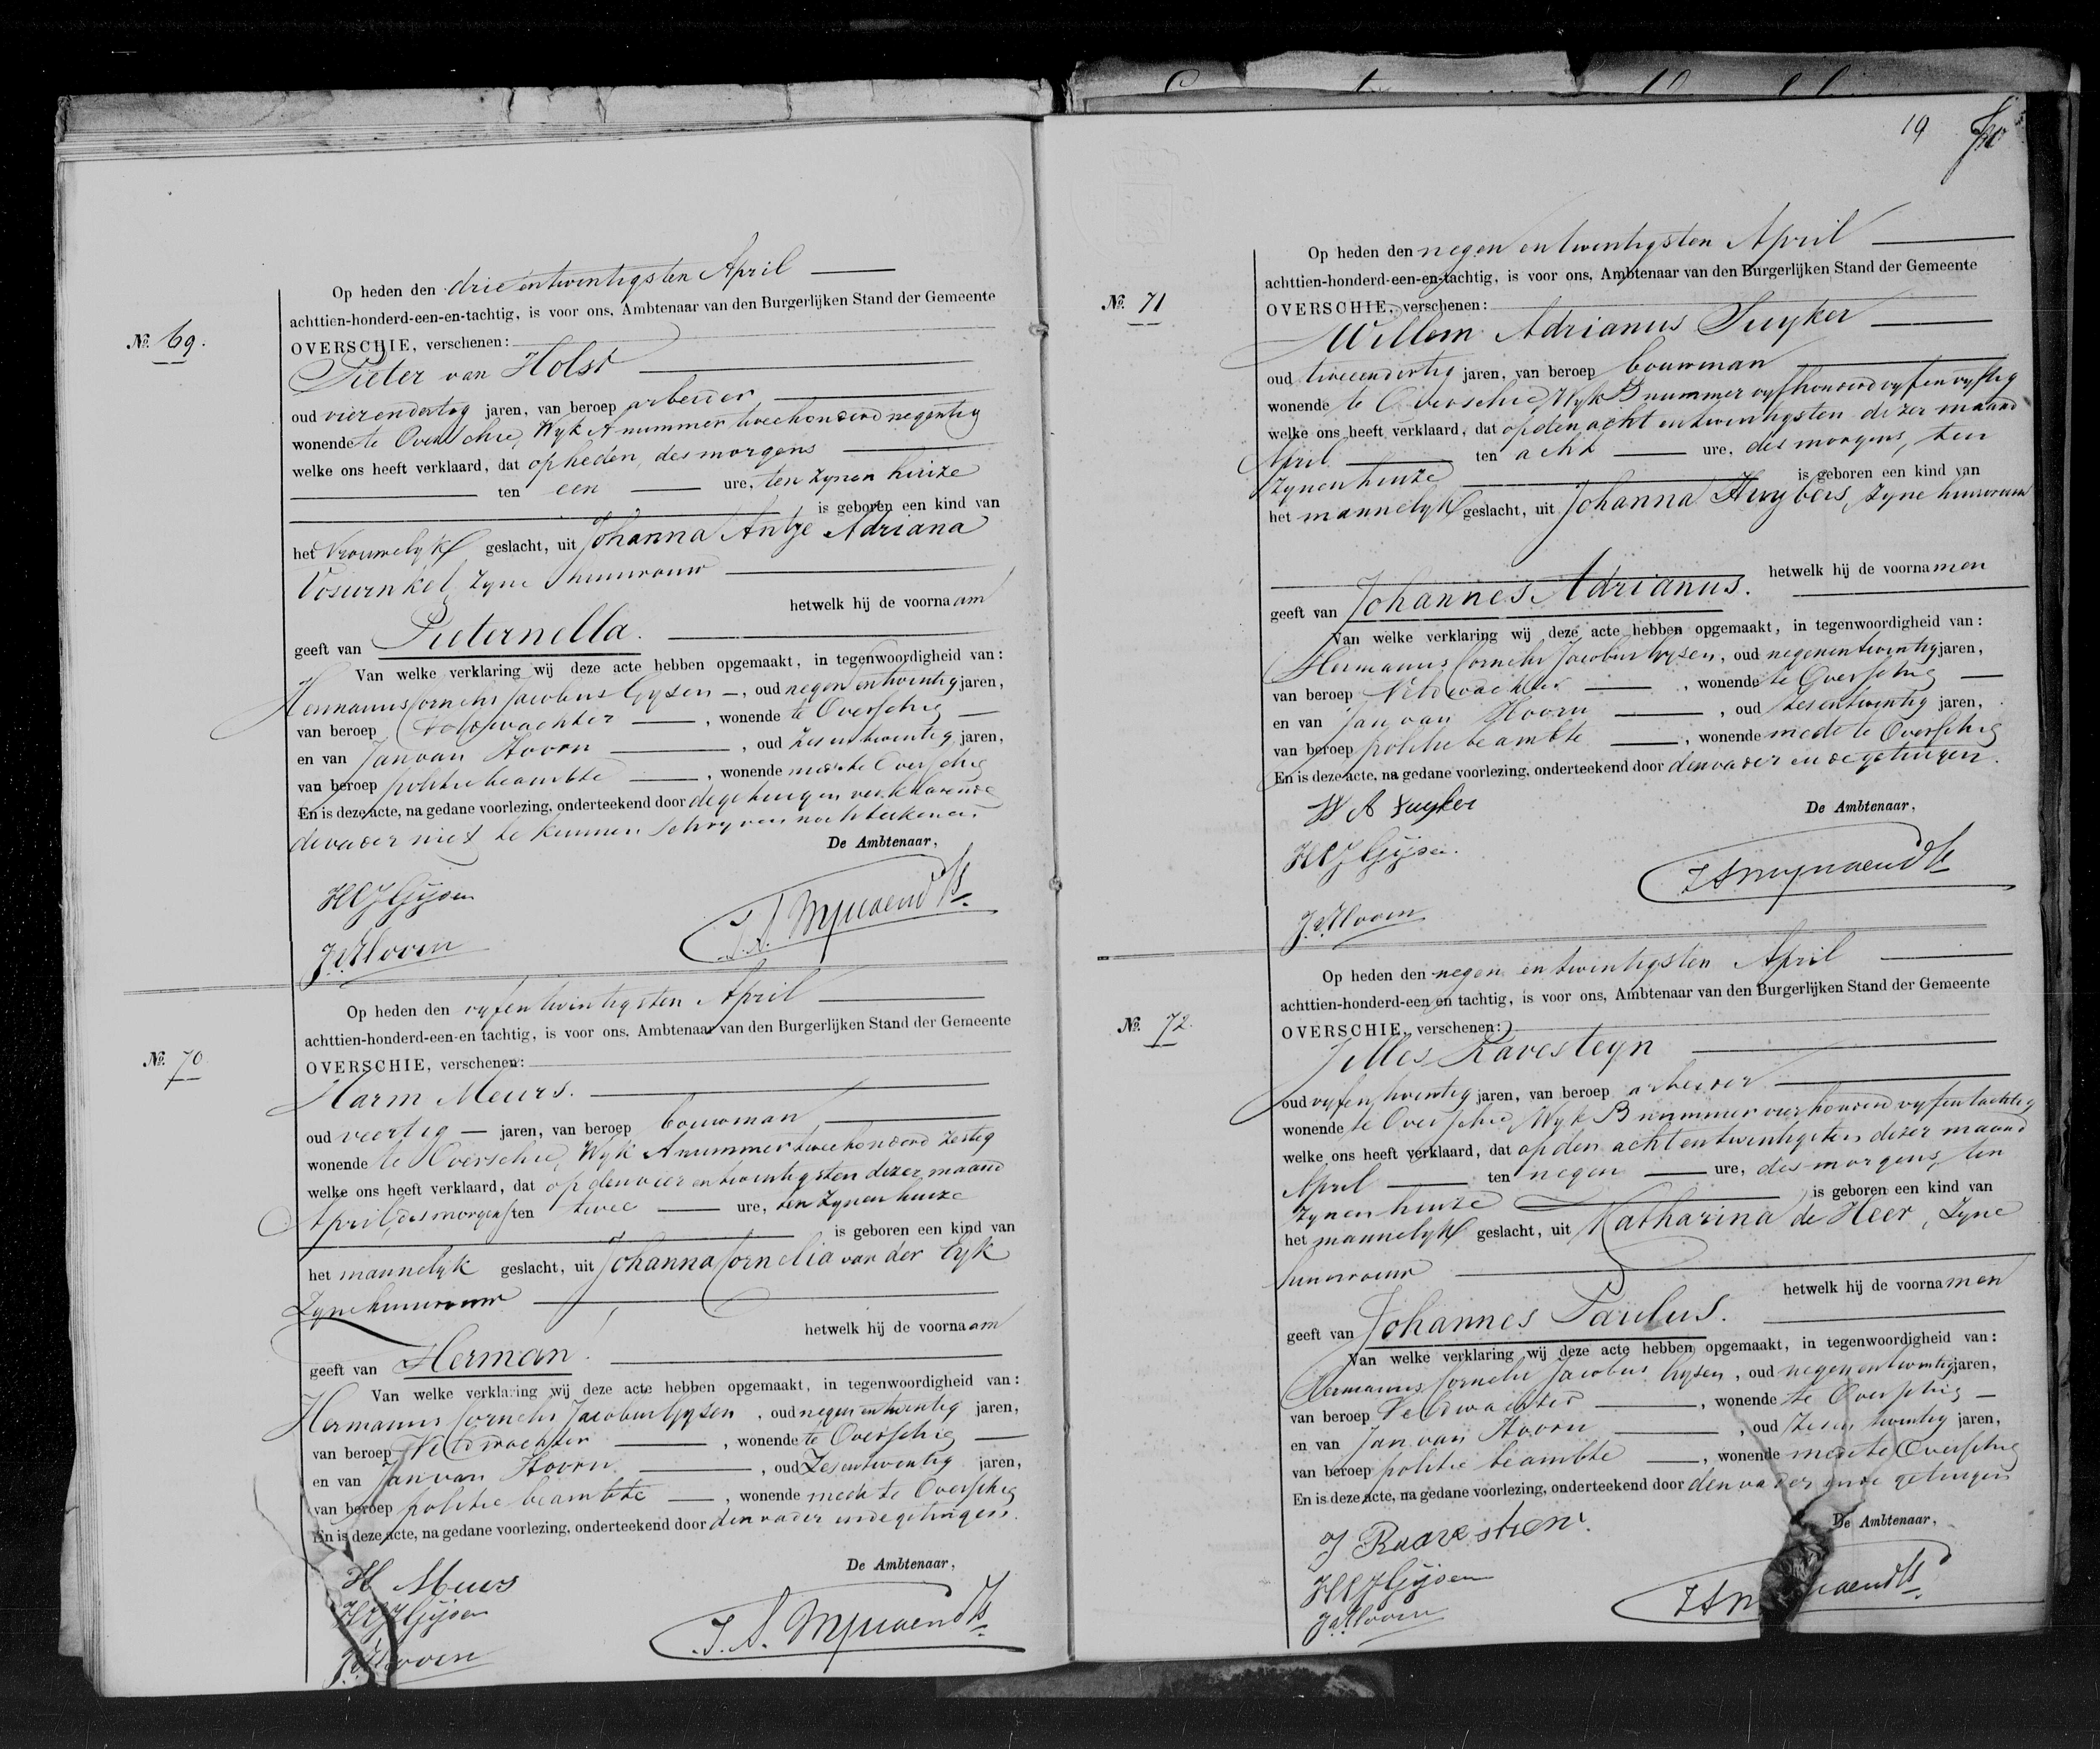 Op heden den drie en twintigsten April
achttien-honderd-een-en-tachtig, is voor ons, Ambtenaar van den Burgerlijken Stand der Gemeente
No. 69.
OVERSCHIE, verschenen:
Pieter van Holst
oud vierendertig jaren, van beroep arbeider
wonende te Overschie, Wyk A nummer tweehonderd negentig
welke ons heeft verklaard, dat op heden, des morgens
ten een ure, ten zynen huize
is geboren een kind van
het Vrouwelyk geslacht, uit Johanna Antje Adriana
Voswinkel, zyne huisvrouw
hetwelk hij de voornaam
geeft van Pieternella.
Van welke verklaring wij deze acte hebben opgemaakt, in tegenwoordigheid van:
Hermanus Cornelis Jacobus Gysen, oud negen en twintig jaren,
van beroep Veldwachter, wonende te Overschie
en van Jan van Hoorn, oud zes en twintig jaren,
van beroep politie beambte, wonende mede te Overschie
En is deze acte, na gedane voorlezing, onderteekend door de getuigen verklarende
de vader niet te kunnen schryven noch teekenen
De Ambtenaar,
H C J Gijsen
J. v. Hoorn
Op heden den vyfentwintigsten April
achttien-honderd-een-en tachtig, is voor ons, Ambtenaar van den Burgerlijken Stand der Gemeente
No. 70
OVERSCHIE, verschenen:
Harm Meurs.
oud veertig jaren, van beroep bouwman
wonende te Overschie, Wyk A nummer tweehonderd zestig
welke ons heeft verklaard, dat op den vier en twintigsten dezer maand
April, des morgens ten twee ure, ten zynen huize
is geboren een kind van
het mannelyk geslacht, uit Johanna Cornelia van der Eyk
Zyne huisvrouw
hetwelk hij de voornaam
geeft van Herman.
Van welke verklaring wij deze acte hebben opgemaakt, in tegenwoordigheid van:
Hermanus Cornelis Jacobus Gysen, oud negen en twintig jaren,
van beroep Veldwachter, wonende te Overschie
en van Jan van Hoorn, oud Zes en twintig jaren,
van beroep politie beambte, wonende mede te Overschie
En is deze acte, na gedane voorlezing, onderteekend door den vader en de getuigen.
De Ambtenaar,
H Meurs
H C J Gijsen
J. v. Hoorn
19
Op heden den negen en twintigsten April
achttien-honderd-een-en-tachtig, is voor ons, Ambtenaar van den Burgerlijken Stand der Gemeente
No. 71
OVERSCHIE, verschenen:
Willem Adrianus Suyker
oud tweeendertig jaren, van beroep bouwman
wonende te Overschie, Wyk B nummer vyfhonderd vyfenvyftig
welke ons heeft verklaard, dat op den acht en twintigsten dezer maand
April ten acht ure, des morgens, ten
zynen huize is geboren een kind van
het mannelyk geslacht, uit Johanna Huybers, zyne huisvrouw
hetwelk hij de voornamen
geeft van Johannes Adrianus.
Van welke verklaring wij deze acte hebben opgemaakt, in tegenwoordigheid van:
Hermanus Cornelis Jacobus Gysen, oud negenentwintig jaren,
van beroep Veldwachter, wonende te Overschie
en van Jan van Hoorn, oud zesentwintig jaren,
van beroep politie beambte, wonende mede te Overschie
En is deze acte, na gedane voorlezing, onderteekend door den vader en de getuigen.
De Ambtenaar,
W A Suyker
H C J Gijsen.
J. v. Hoorn
Op heden den negen en twintigsten April
achttien-honderd-een en tachtig, is voor ons, Ambtenaar van den Burgerlijken Stand der Gemeente
No. 72.
OVERSCHIE, verschenen:
Jilles Ravesteyn
oud vyfentwintig jaren, van beroep arbeider
wonende te Overschie, Wyk B nummer vierhonderd vyfentachtig
welke ons heeft verklaard, dat op den achtentwintigsten dezer maand
April ten negen ure, des morgens, ten
zynen huize is geboren een kind van
het mannelyk geslacht, uit Katharina de Heer, Zyne
huisvrouw
hetwelk hij de voornamen
geeft van Johannes Paulus.
Van welke verklaring wij deze acte hebben opgemaakt, in tegenwoordigheid van:
Hermanus Cornelis Jacobus Gysen, oud negenentwintig jaren,
van beroep Veldwachter, wonende te Overschie
en van Jan van Hoorn, oud Zes en twintig jaren,
van beroep politie beambte, wonende mede te Overschie
En is deze acte, na gedane voorlezing, onderteekend door den vader en de getuigen
De Ambtenaar,
J Raavestien.
H C J Gijsen
J. v. Hoorn